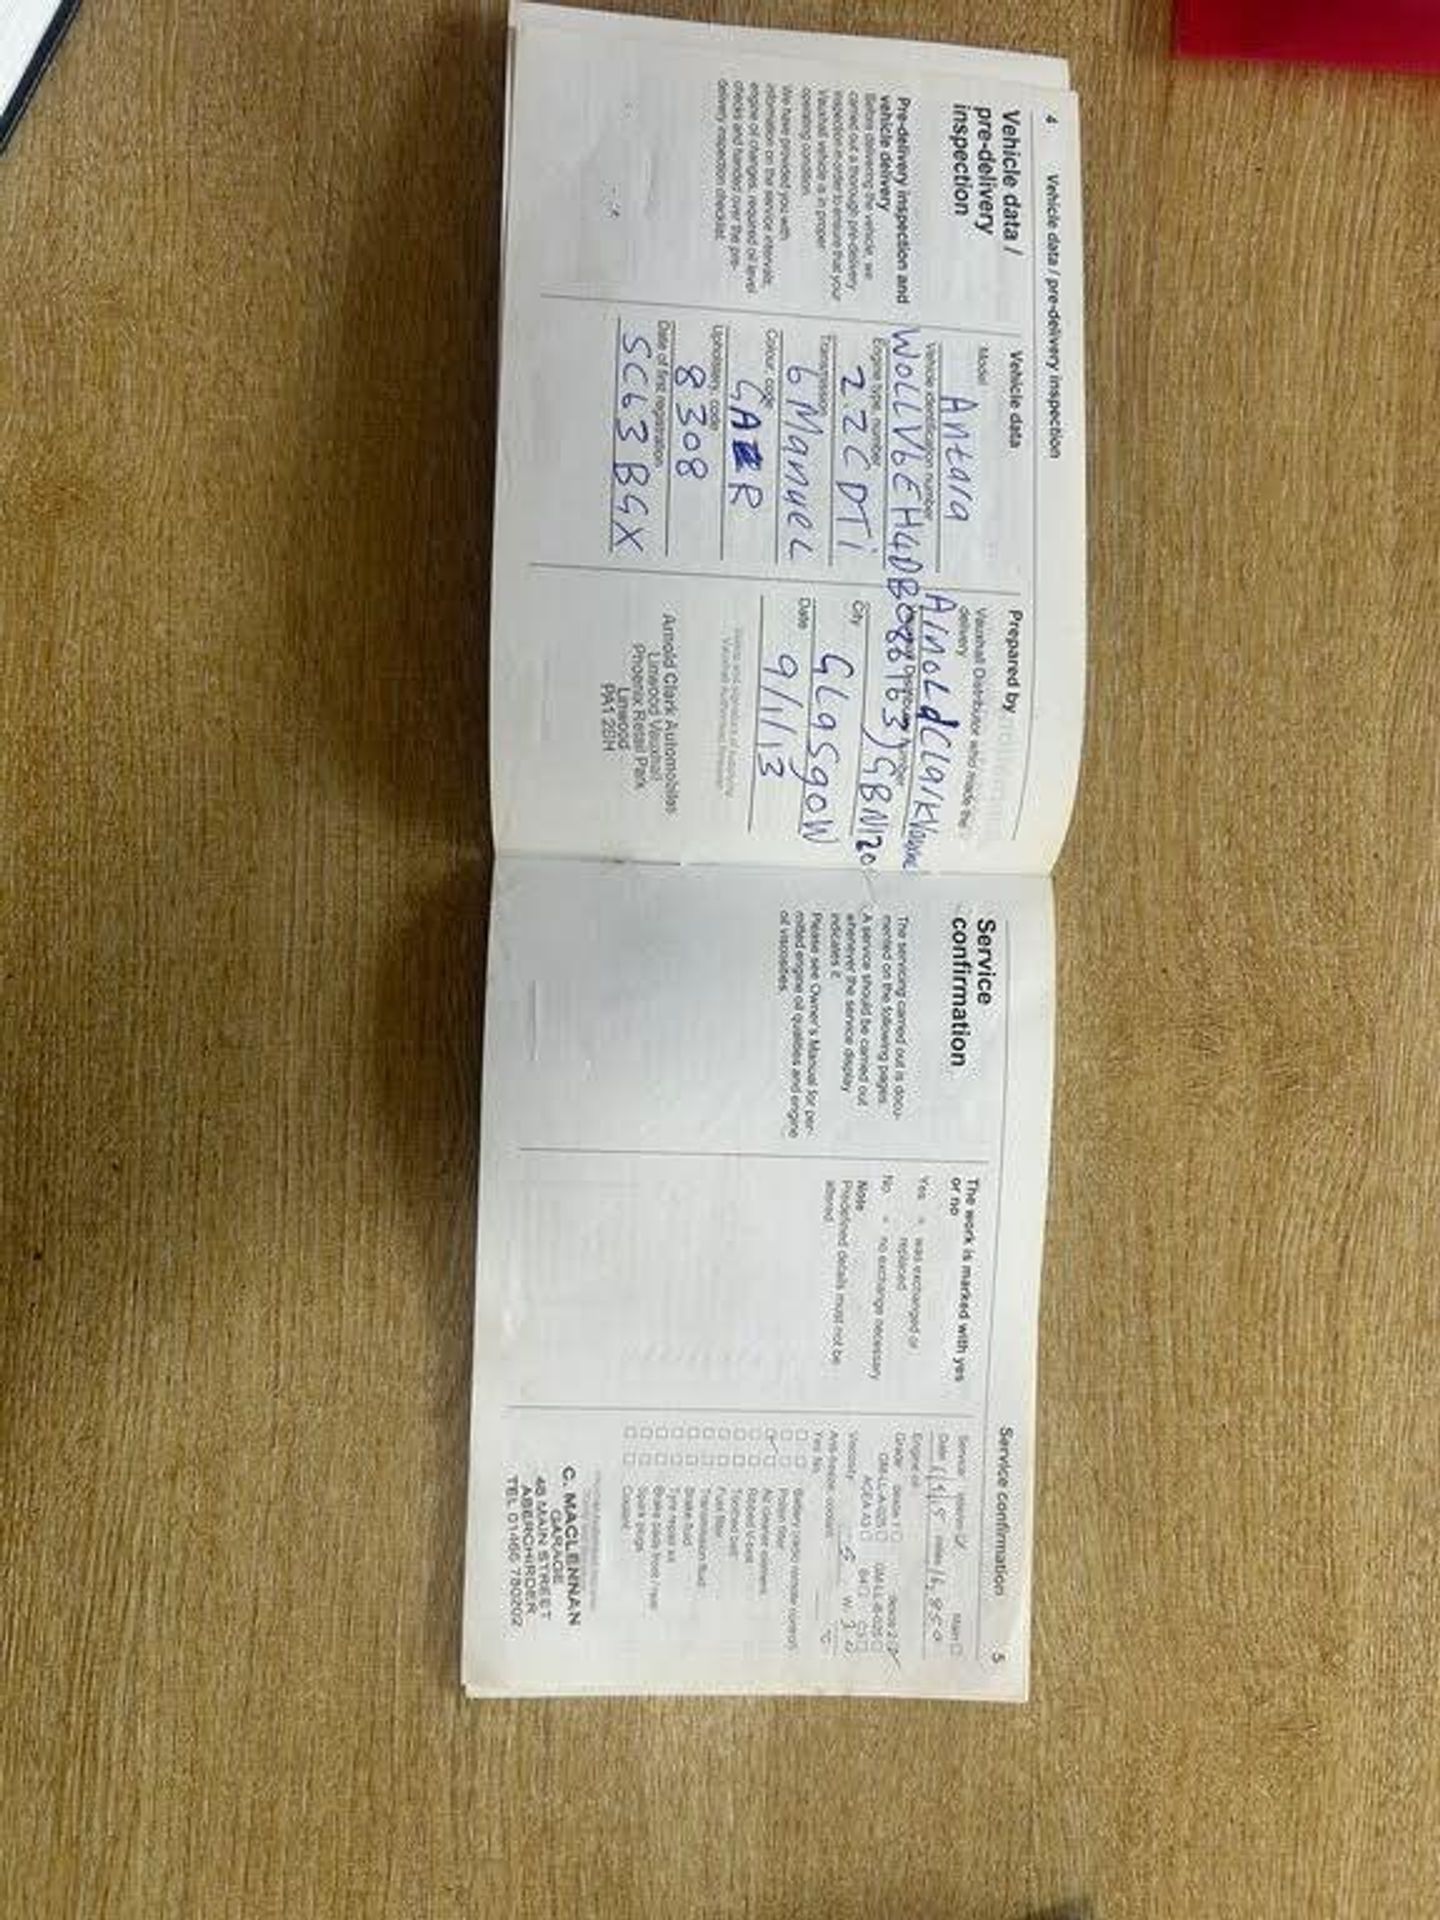 4 Vehicle data / pre-delivery inspection
Vehicle data /
pre-delivery
inspection
Pre-delivery inspection and
vehicle delivery
Before delivering the vehicle, we
carried out a thorough pre-delivery
inspection in order to ensure that your
Vauxhall vehicle is in proper
operating condition.
We have provided you with
information on the service intervals,
engine oil changes, required oil level
checks and handed over the pre-
delivery inspection checklist.
Vehicle data
Model
Antara
Vehicle identification number
Engine type, number
22CDTi
Transmission
6 Manuel
Colour, code
GA R
Upholstery code
8308
Date of first registration
SC63 BGX
Prepared by
Vauxhall Distributor who made the
delivery
Arnold Clark
GBN120
City
Glasgow
Date
9/1/13
Arnold Clark Automobiles
Linwood Vauxhall
Phoenix Retail Park
Linwood
PA1 2BH
Service confirmation 5
Service
confirmation
The servicing carried out is docu-
mented on the following pages.
A service should be carried out
whenever the service display
indicates it.
Please see Owner's Manual for per-
mitted engine oil qualities and engine
oil viscosities.
The work is marked with yes
or no
Yes = was exchanged or
replaced
No = no exchange necessary
Note
Predefined details must not be
altered.
Service Main
Date miles 16,950
Engine oil
Grade dexos 1 dexos 2
GM-LL-A-025 GM-LL-B-025
ACEA A3 B4 C3
Viscosity 5 W 30
Anti-freeze, coolant °C
Yes No
Battery (radio remote control)
Pollen filter
Air cleaner element
Ribbed V-belt
Toothed belt
Fuel filter
Transmission fluid
Brake fluid
Tyre repair kit
Brake pads front / rear
Spark plugs
Coolant
C. MACLENNAN
GARAGE
48 MAIN STREET
ABERCHIRDER
TEL 01466 780202